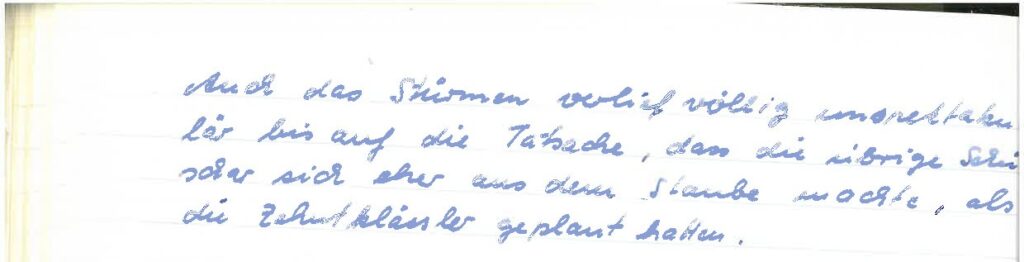 Auch das Stürmen verlief völlig unspektaku
lär bis auf die Tatsache, dass die übrige Schü
schar sich eher aus dem Staube machte, als
die Zehntklässler geplant hatten.